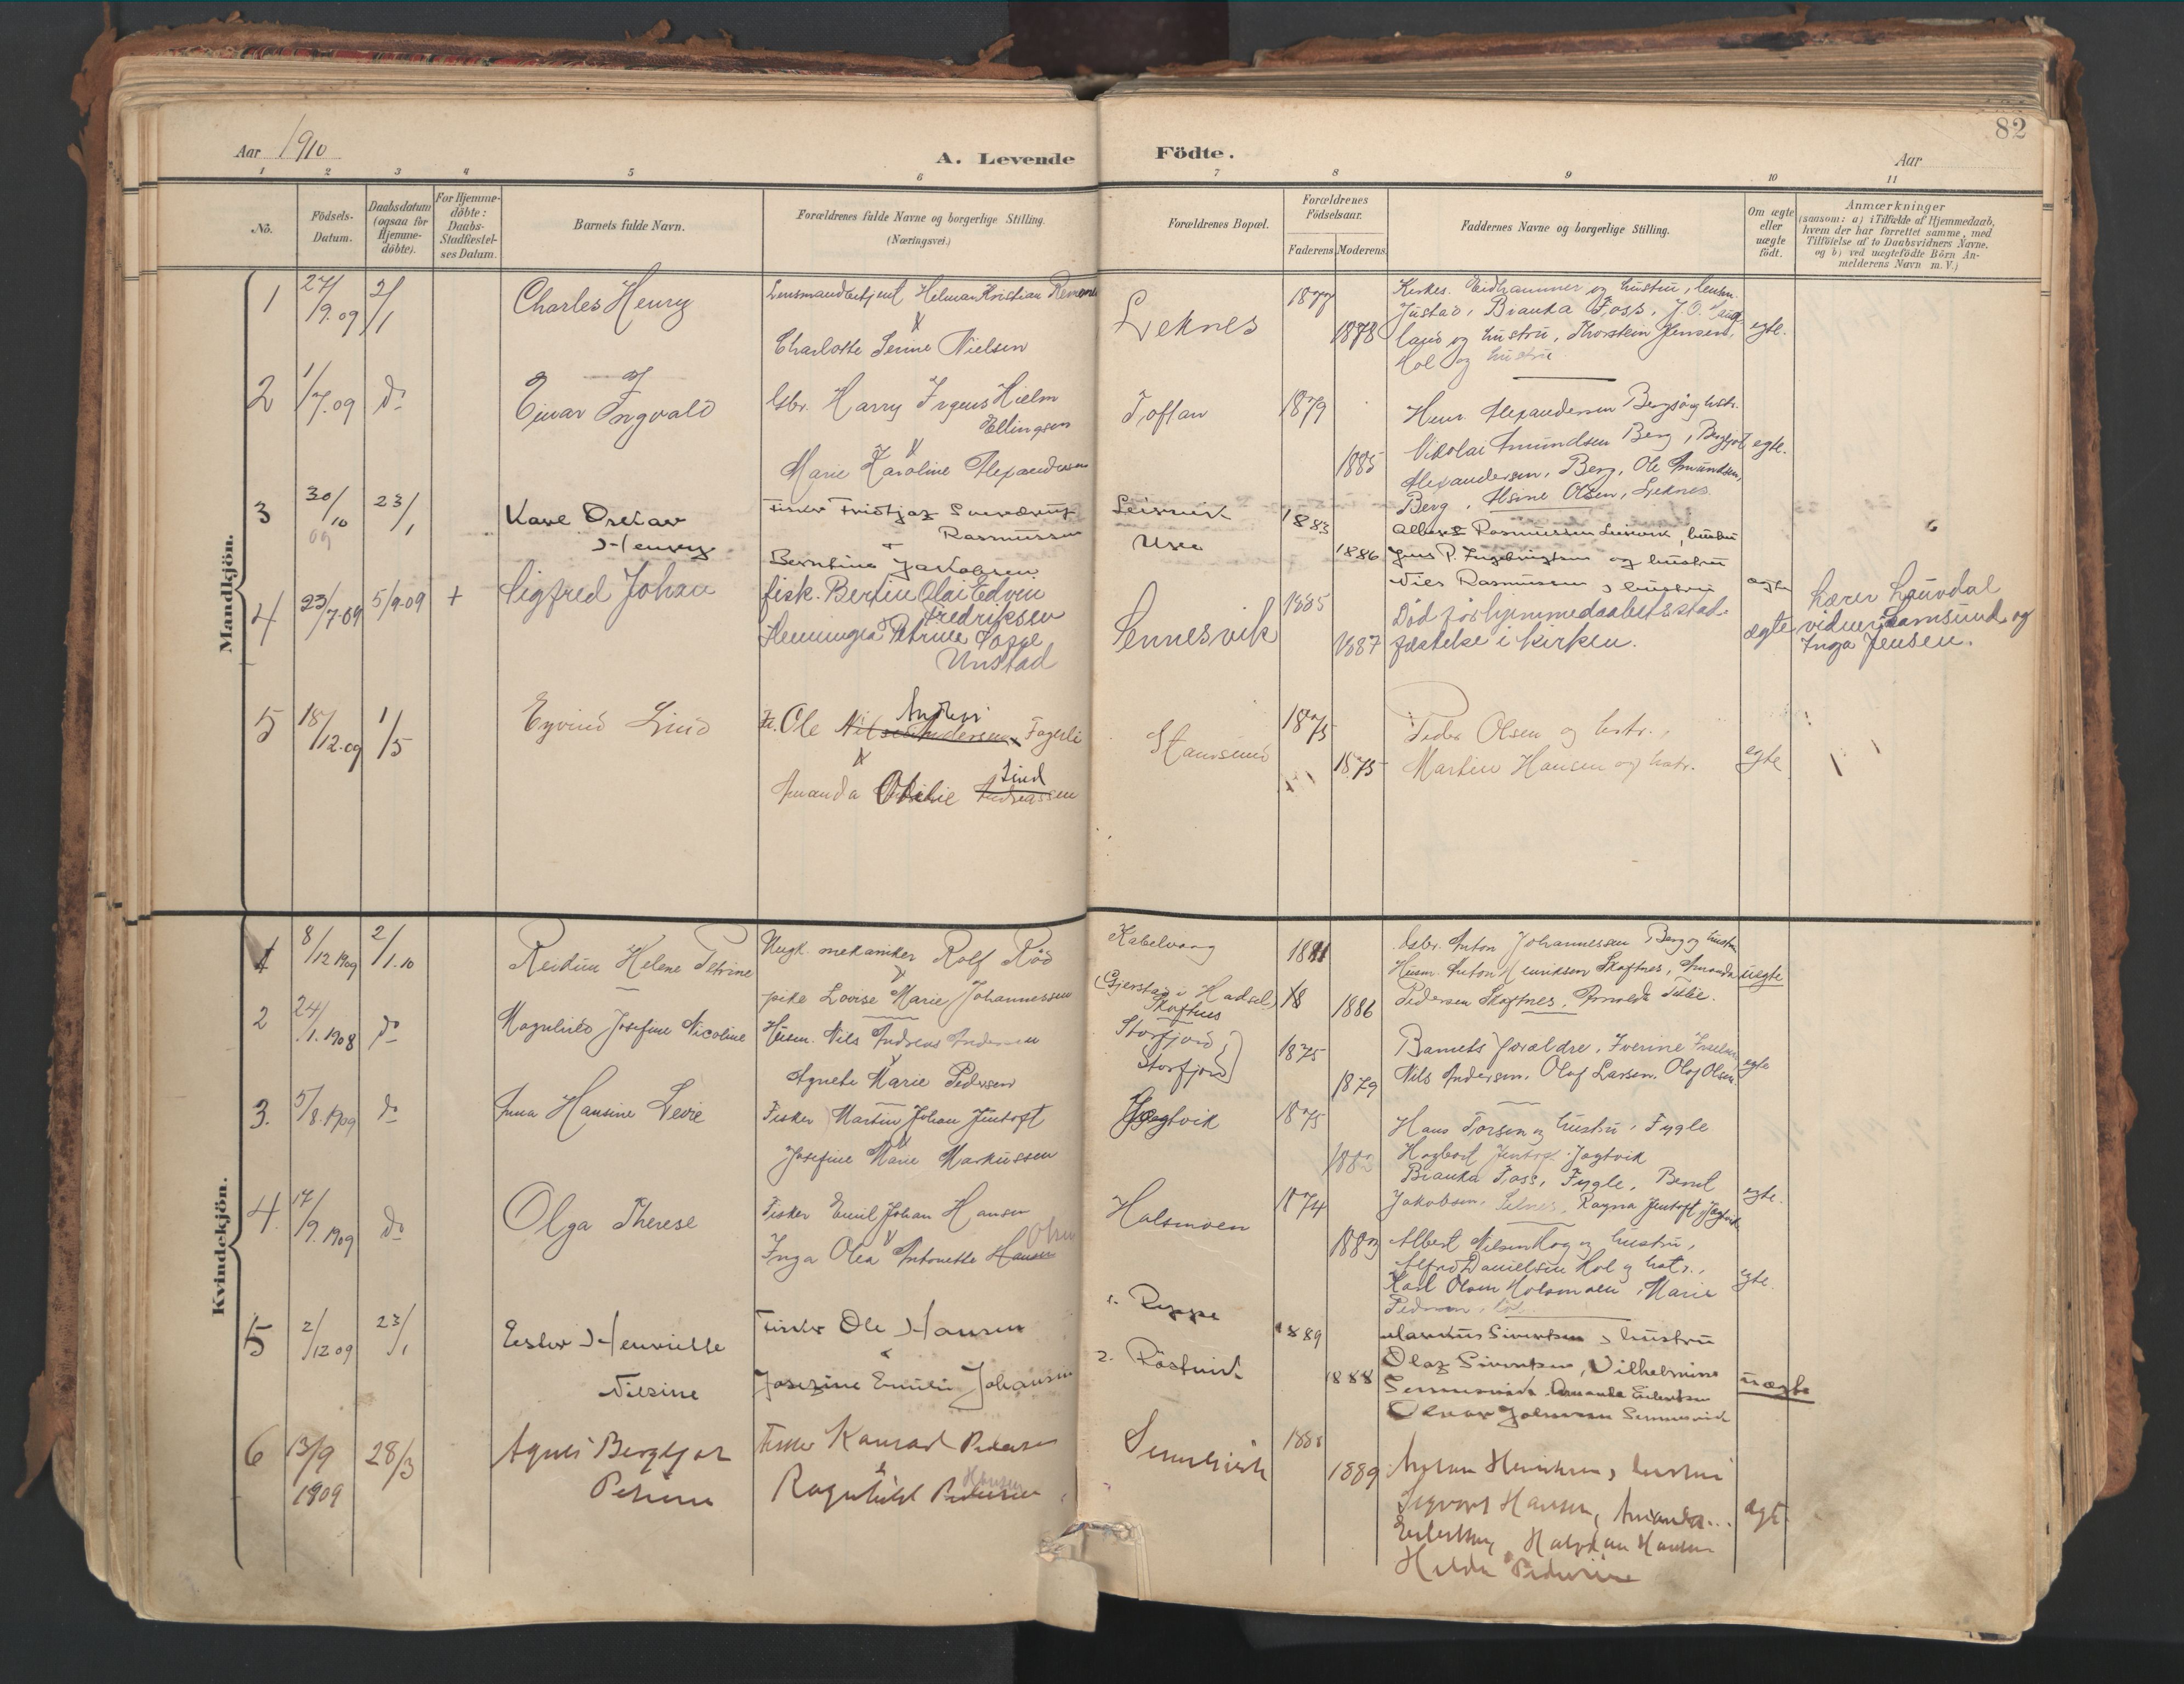 82
Aar 1910
A. Levende
Födte.
Aar
1 2 3 4 5 6 7 8 9 10 11
No.
Födsels-Datum.
Daabsdatum (ogsaa for Hjemme-döbte).
For Hjemme-döbte: Daabs-Stadfæstel-ses Datum.
Barnets fulde Navn.
Forældrenes fulde Navne og borgerlige Stilling.
(Næringsvei.)
Forældrenes Bopæl.
Forældrenes Födselsaar.
Faderens Moderens.
Faddernes Navne og borgerlige Stilling.
Om ægte eller uægte födt.
Anmærkninger
(saasom: a) i Tilfælde af Hjemmedaab,
hvem der har forrettet samme, med
Tilföielse af to Daabsvidners Navne.
og b) ved uægtefödte Börn An-
melderens Navn m. V.)
Mandkjön.
1 27/9.09 2/1 Charles Henry
Lensmandbetjent Helman Kristian
Charlotte Serine Nielsen
Leknes 1877 1878
hustru, Lensm.
Justad, Bianka Foss, J.O.
land og hustru, Thorstein Jensen,
Hol og hustru
egte.
2 1/7.09 do Einar Ingvald
Gbr. Harry Irgens Hielm
Ellingsen
Marie Karoline Alexandersen
Toftan 1879 1885
Henr. Alexandersen Berg og hstr.
Nikolai Amundsen Berg, Bergljot
Alexandersen, Berg, Ole Amundsen,
Berg, Alsine Olsen, Leknes.
egte.
3 30/10 09 23/1 Kaare Oskar
Henry
Fisker Fridtjof Sverdrup
Rasmussen
+
Berntine Jakobsen
Leirvik
Ure
1883 1886
Albert Rasmussen Leirvik, hustru
Jens P. Ingebrigtsen og hustru
Nils Rasmussen & hustru
ægte
4 23/7.09 5/9.09 + Sigfred Johan
fisk. Bertin Olai Edvin
Fredriksen
Henningia Petrine
Unstad
Sennesvik 1885 1887
Död för hjemmedaabets stad-
fæstelse i kirken.
ægte
Lærer Lauvdal
vidner: Samsund og
Inga Jensen.
5 18/12.09 1/5 Eyvind Lind
Fi. Ole Nilsen Andersen Anders Fagerli
Amanda Otilie Andreassen Lind
Stamsund 1875 1875
Peder Olsen og hstr.,
Martin Hansen og hstr.
egte
Kvindekjön.
1 8/12 1909 2/1.10 Reidun Helene Petrine
Ungk. mekaniker Rolf Röd
pike Lovise Marie Johannessen
Kabelvaag
(Gjerstad i Hadsel)
Skaftnes
1881 1886
Gbr. Anton Johannessen Berg og hustru
Husm. Anton Henriksen Skaftnes, Amanda
Pedersen Skaftnes, Arnolda
uegte
2 24/1.1908 do Magnhild Josefine Nicoline
Husm. Nils Andreas Andersen
Agnete Marie Pedersen
Storfjord,
Storfjord
1875 1879
Barnets foraldre, Iverine
Nils Andersen, Olaf Larsen, Olaf Olsen
egte
3. 5/8.1909 do Anna Hansine Levie
Fisker Martin Johan Jentoft
Josefine Marie Markussen
Jægtvik
1875 188
Hans Torsen og hustru, Fygle
Hagbart Jentoft Jægtvik
Bianka Foss, Fygle, Bernt
Jakobsen, Ragna Jentoft, Jægtvik
egte.
4. 17/9.1909 do Olga Therese
Fisker Emil Johan Hansen
Inga Olea Antonette Hansen Olsen
Holsmoen
1874 1883
Albert Nilsen Hag og hustru,
Alfred Danielsen Hol og hstr.,
Karl Olsen Holsmoen, Marie
Pedersen,
egte.
5 2/12 09 23/1 Ester Henriette
Nilsine
Fisker Ole Hansen
Josefine Emilie Johansen
1. Reppe
2. Röstvik
1889 1888
Markus Sivertsen & hustru
Olaf Sivertsen, Vilhelmine
Sennesvik, Amanda Eilertsen
Oskar Johansen Sennesvik
uægte
6 13/9 1909 28/3 Agnes Bergljot
Petrine
Fisker Konrad Pedersen
&
Ragnhild Pedersen Hansen
Sennesvik
1888 1889
Anton Henriksen & hustru
Sigvart Hansen, Amanda
Eilertsen, Halvdan Hansen
Hilda Pedersen
ægte